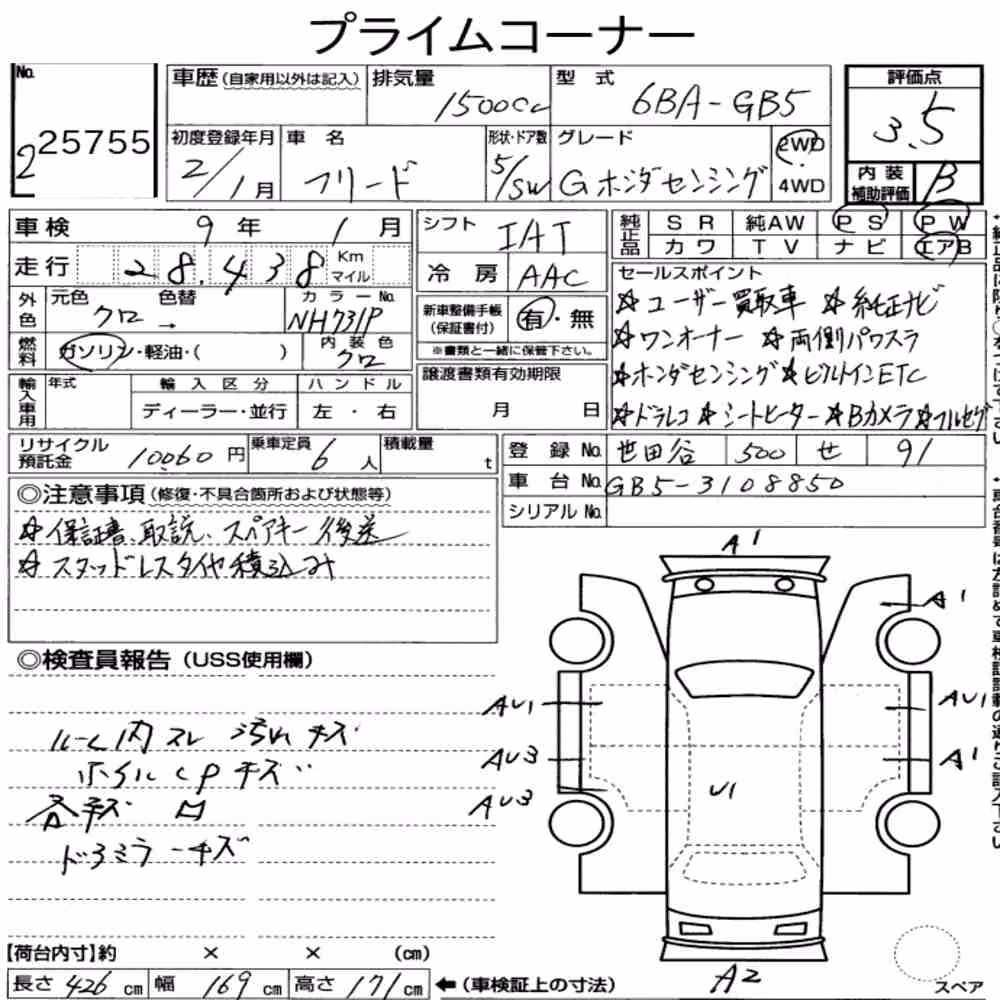 プライムコーナー
No. 2 25755
車歴(自家用以外は記入)
排気量 1500cc
型式 6BA-GB5
評価点 3.5
初度登録年月 2/1月
車名 フリード
形状・ドア数 5/SW
グレード Gホンダセンシング
2WD・4WD
内装補助評価 B
車検 9年 1月
走行 28,438 Km マイル
外色 元色 クロ → 色替
カラーNo. NH731P
燃料 ガソリン・軽油・( )
内装色 クロ
輸入車用 年式
輸入区分 ディーラー・並行
ハンドル 左・右
シフト IAT
冷房 AAC
新車整備手帳(保証書付) 有・無
※書類と一緒に保管下さい。
譲渡書類有効期限 月 日
純正品 SR 純AW PS PW
カワ TV ナビ エアB
セールスポイント
☆ユーザー買取車 ☆純正ナビ
☆ワンオーナー ☆両側パワスラ
☆ホンダセンシング☆ビルトインETC
☆ドラレコ ☆シートヒーター ☆Bカメラ☆フルセグ
リサイクル預託金 10060円
乗車定員 6人
積載量 t
登録No. 世田谷 500 せ 91
車台No. GB5-3108850
シリアルNo.
◎注意事項(修復・不具合箇所および状態等)
☆保証書、取説、スペアキー後送
☆スタッドレスタイヤ積込み
◎検査員報告(USS使用欄)
ルーム内スレ 汚れ キズ
ホイルCPキズ
各キズ 凹
ドアミラーキズ
A1
A1
AU1
AU1
AU3
A1
AU3
U1
A2
スペア
【荷台内寸】約 × × (cm)
長さ 426 cm 幅 169 cm 高さ 171 cm ←(車検証上の寸法)